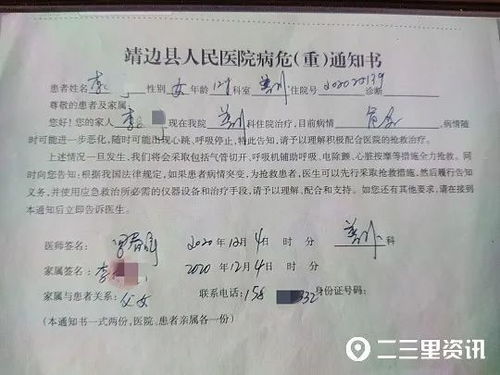 靖边县人民医院病危(重)通知书
患者姓名 李 性别 女 年龄 12岁 科室 普外 住院号 诊断
尊敬的患者及家属:
您好!您的家人 李 现在我院 普外 科住院治疗,目前病情 危急 ,病情随
时可能进一步恶化,随时可能出现心跳、呼吸停止,特此告知,请予以理解积极配合医院的抢救治疗。
上述情况一旦发生,我们将会采取包括气管切开、呼吸机辅助呼吸、电除颤、心脏按摩等措施全力抢救。同
时向您告知:根据我国法律规定,如果患者病情突变,为抢救患者,医生可以先行采取抢救措施,然后履行告知
义务,并使用应急救治所必需的仪器设备和治疗手段,请予以理解、配合和支持。如您还有其他要求,请在接到
本通知后立即告诉医生。
医师签名: 2020年12月4日 时 分 普外 科
家属签名: 李 2020年12月4日 时 分
家属与患者关系: 父女 联系电话: 158 332 身份证号码:
(本通知书一式两份,医院、患者亲属各一份)
二三里资讯